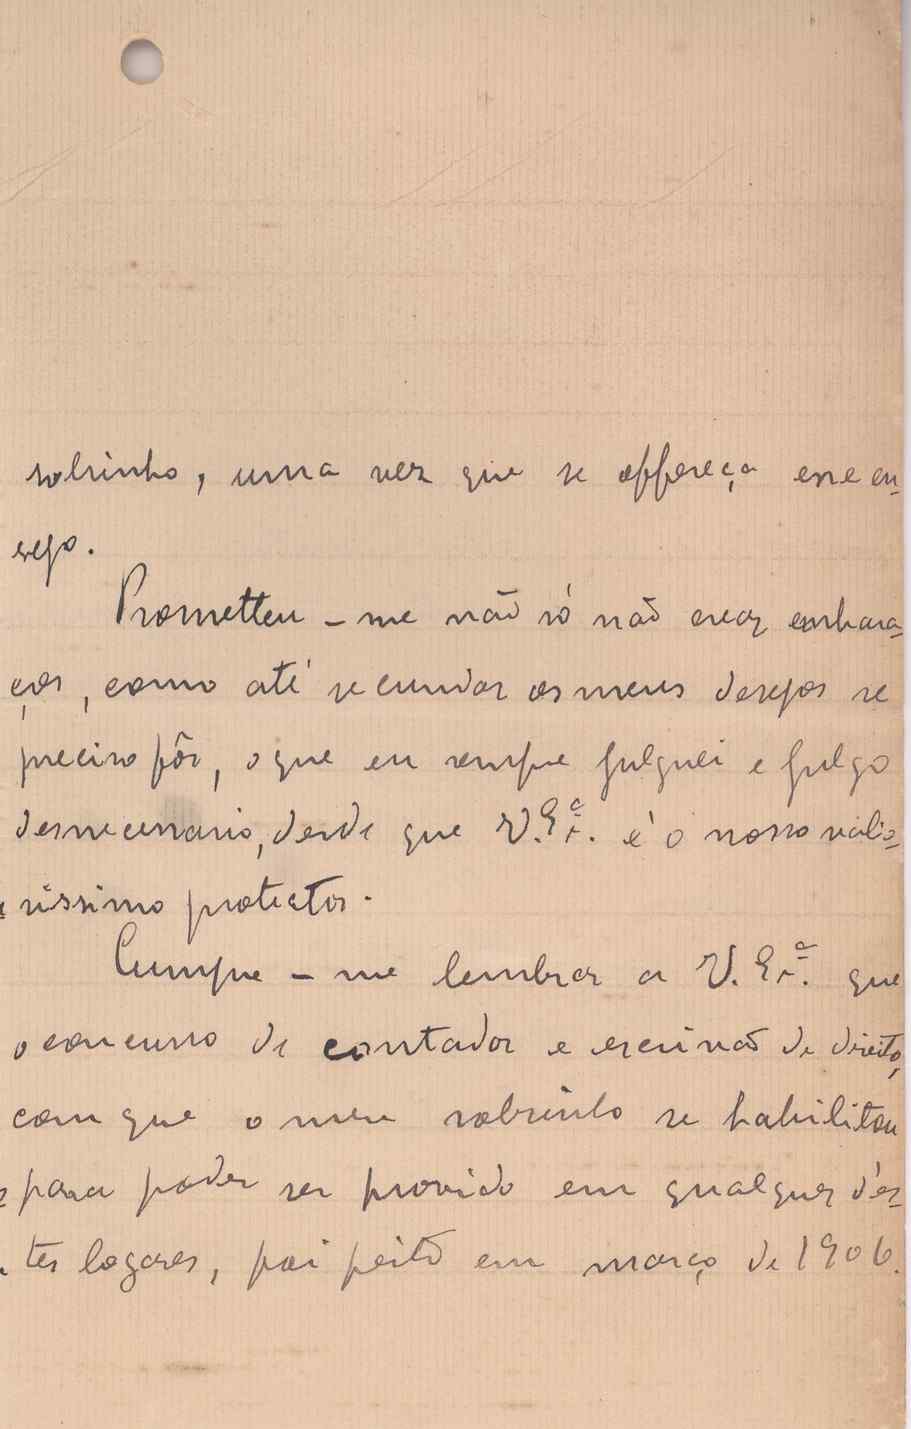 sobrinho, uma vez que se offereça esse en-
sejo.
Prometteu-me não só não crear embara-
ços, como até secundar os meus desejos se
preciso fôr, o que eu sempre julguei e julgo
desnecessario, desde que V. Ex.ª é o nosso valio-
sissimo protector.
Cumpre-me lembrar a V. Ex.ª que
o concurso de contador e escrivão de direito,
com que o meu sobrinho se habilitou
para poder ser provido em qualquer d'es-
tes logares, foi feito em março de 1906.